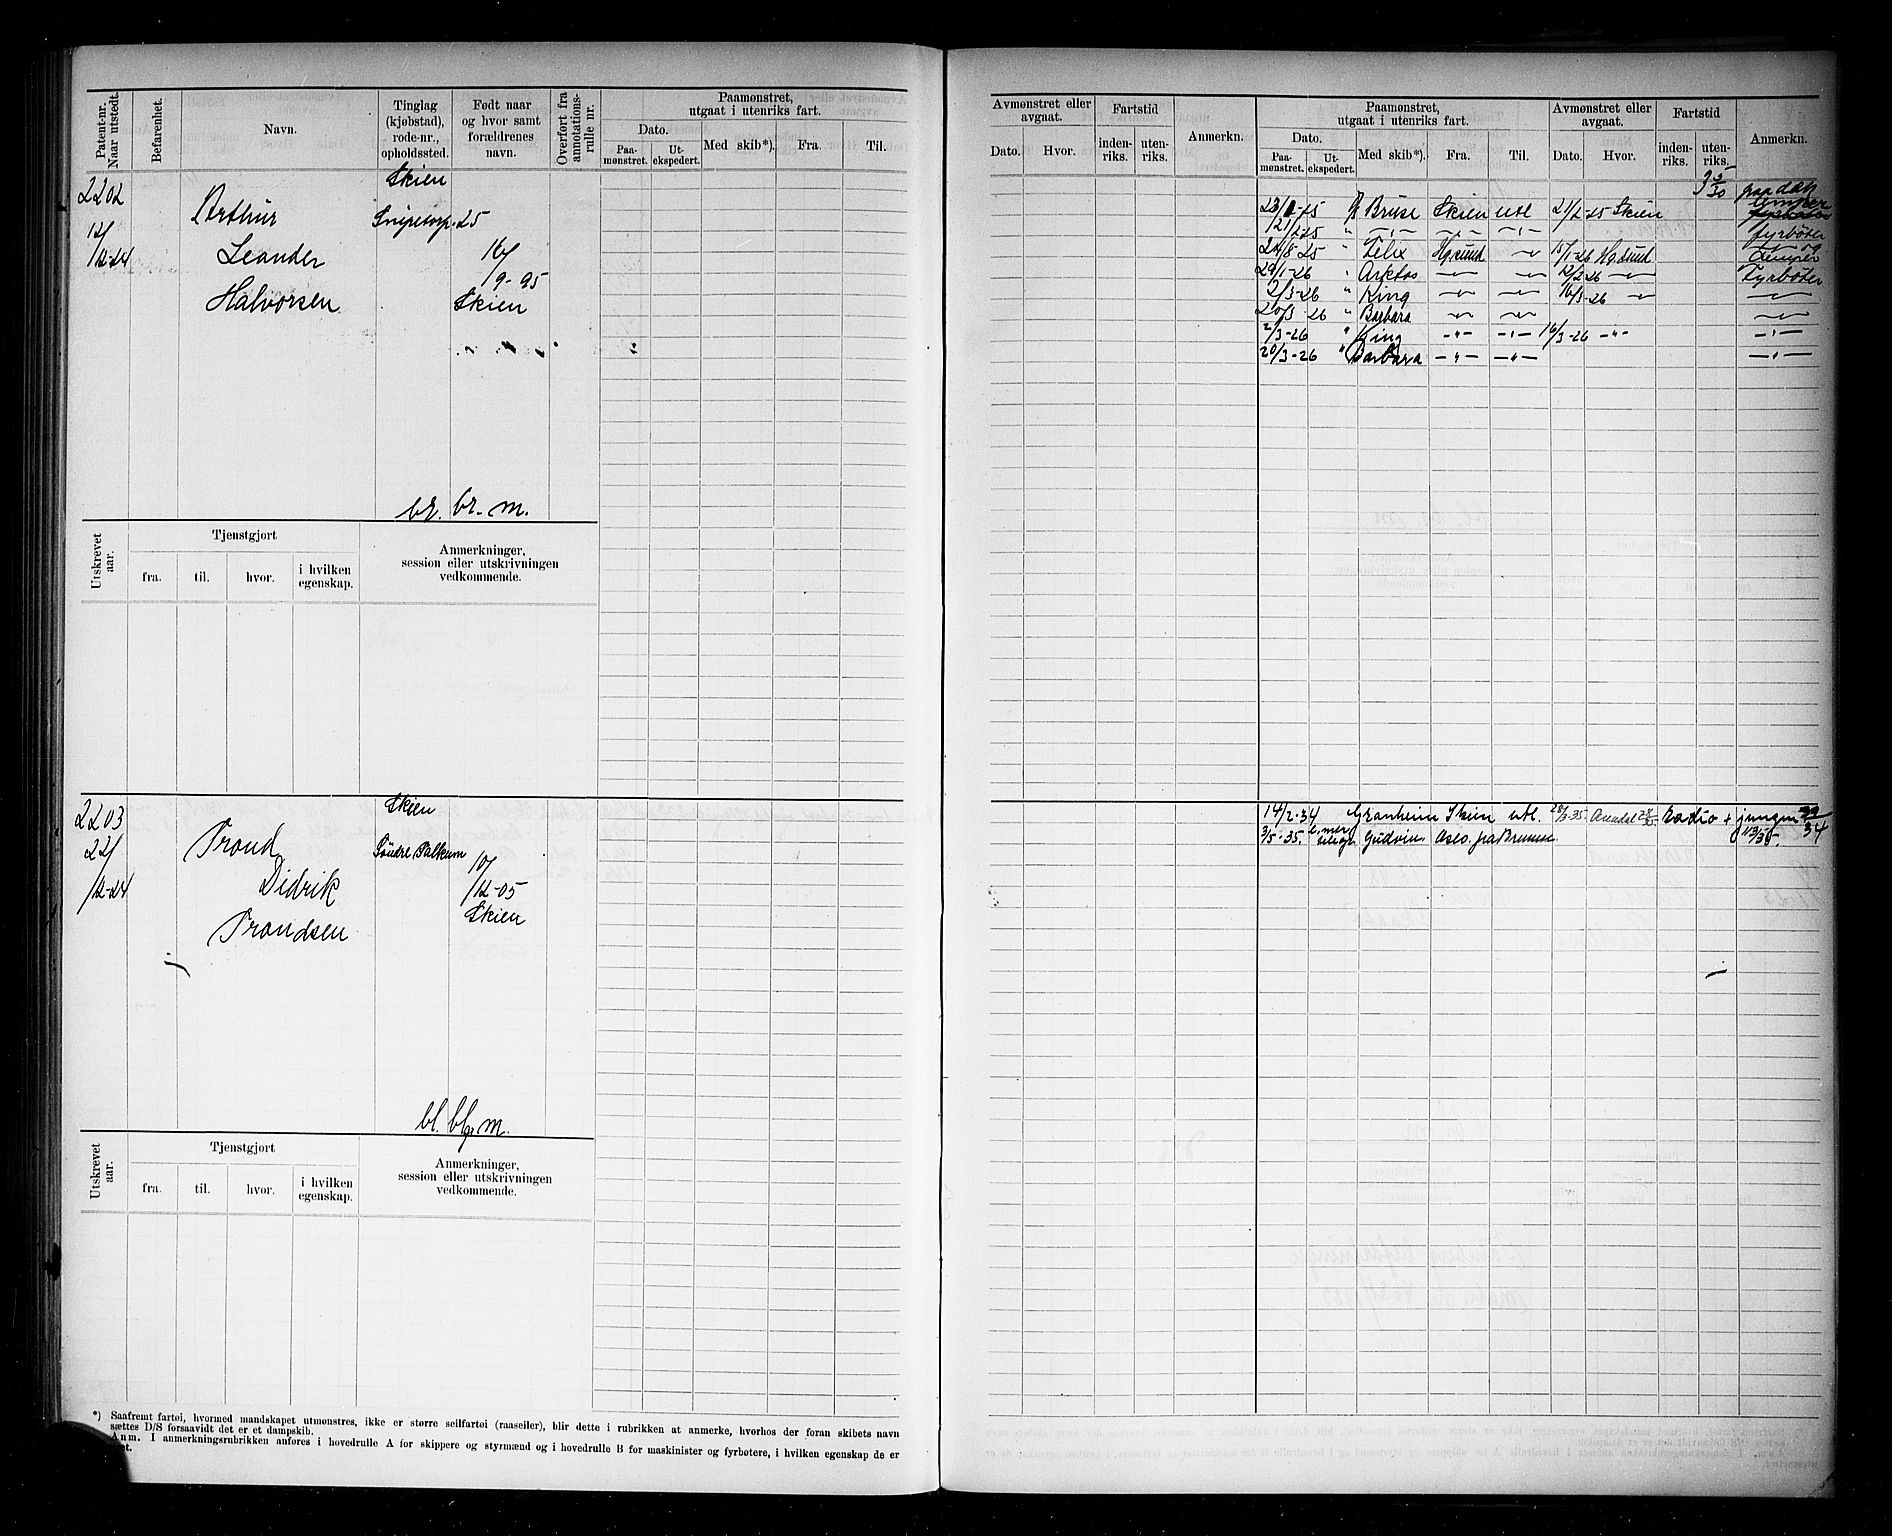 Patent-nr. Naar utstedt.
Befarenhet.
Navn.
Tinglag (kjøbstad), rode-nr., opholdssted.
Født naar og hvor samt forældrenes navn.
Overført fra annotations-rulle nr.
Paamønstret, utgaat i utenriks fart.
Dato.
Paa-mønstret.
Ut-ekspedert.
Med skib*).
Fra.
Til.
2202
12/12-24
Arthur
Leander
Halvorsen
Skien
Snipetorp. 25
16/9-95
Skien
br. br. m.
Utskrevet aar.
Tjenstgjort
fra.
til.
hvor.
i hvilken egenskap.
Anmerkninger, session eller utskrivningen vedkommende.
2203
22/12-24
Trond
Didrik
Trondsen
Skien
Søndre Falkum
10/12-05
Skien
bl. blg. m.
Utskrevet aar.
Tjenstgjort
fra.
til.
hvor.
i hvilken egenskap.
Anmerkninger, session eller utskrivningen vedkommende.
*) Saafremt fartøi, hvormed mandskapet utmønstres, ikke er større seilfartøi (raaseiler), blir dette i rubrikken at anmerke, hvorhos der foran skibets navn
sættes D/S forsaavidt det er et dampskib.
Anm. I anmerkningsrubrikken anføres i hovedrulle A for skippere og styrmænd og i hovedrulle B for maskinister og fyrbøtere, i hvilken egenskap de er
Avmønstret eller avgaat.
Dato.
Hvor.
Fartstid
inden-riks.
uten-riks.
Anmerkn.
Paamønstret, utgaat i utenriks fart.
Dato.
Paa-mønstret.
Ut-ekspedert.
Med skib*).
Fra.
Til.
Avmønstret eller avgaat.
Dato.
Hvor.
Fartstid
inden-riks.
uten-riks.
Anmerkn.
23/1-25 Bruse Skien utl 21/2-25 Skien lemper
21/2-25 " -"- -"- -"- fyrbøter
24/8-25 " Felix Hgsund -"- 15/1-26 Hgsund Lemper
29/1-26 " Arktos -"- -"- 12/2-26 -"- Fyrbøter
2/3-26 " King -"- -"- 16/3-26 -"- -"-
20/3 26 " Barbara -"- -"- -"-
2/3-26 " King -"- -"- 16/3-26 -"- -"-
20/3-26 " Barbara -"- -"- -"-
14/2-34 Granheim Skien utl. 28/3-35 Arendal radio + jungm 34
3/5-35. Gudvin Oslo